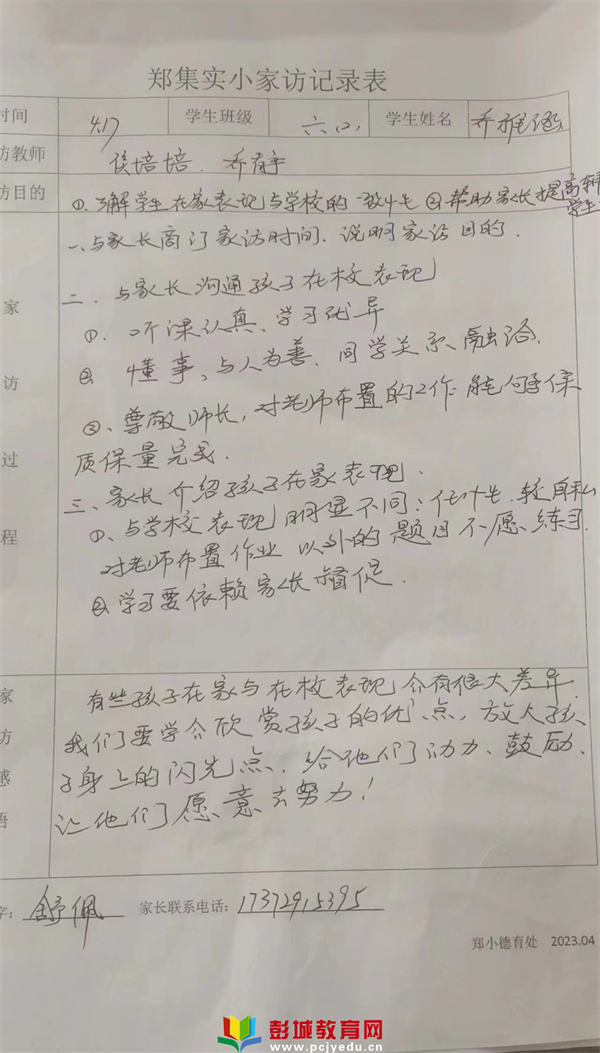 郑集实小家访记录表
时间 4.17 学生班级 六(2) 学生姓名 乔
访教师 侯培培、乔
访目的 ①、了解学生在家表现与学校的一致性 ②帮助家长提高
学生
家访过程
一、与家长商订家访时间、说明家访目的.
二、与家长沟通孩子在校表现
①、听课认真、学习优异
② 懂事、与人为善、同学关系融洽.
③、尊敬师长，对老师布置的工作能够保
质保量完成.
三、家长介绍孩子在家表现.
①、与学校表现明显不同：任性、较自私
对老师布置作业以外的题目不愿练习.
②学习要依赖家长督促.
家访感语
有些孩子在家与在校表现会有很大差异.
我们要学会欣赏孩子的优点，放大孩
子身上的闪光点、给他们动力、鼓励、
让他们愿意去努力！
字：舒佩 家长联系电话：17372915395
郑小德育处 2023.04
彭城教育网
www.pcjyedu.cn